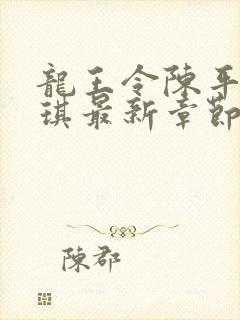 龍王令陳平
琪最新章節
陳郡